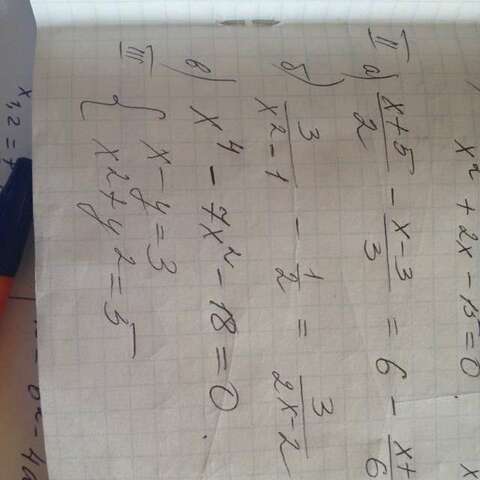 x² + 2x - 15 = 0
II
a) (x+5)/2 - (x-3)/3 = 6 - (x+)/6
б) 3/(x²-1) - 1/2 = 3/(2x-2)
в) x⁴ - 7x² - 18 = 0
III { x - y = 3
x² + y² = 5
x1,2 =